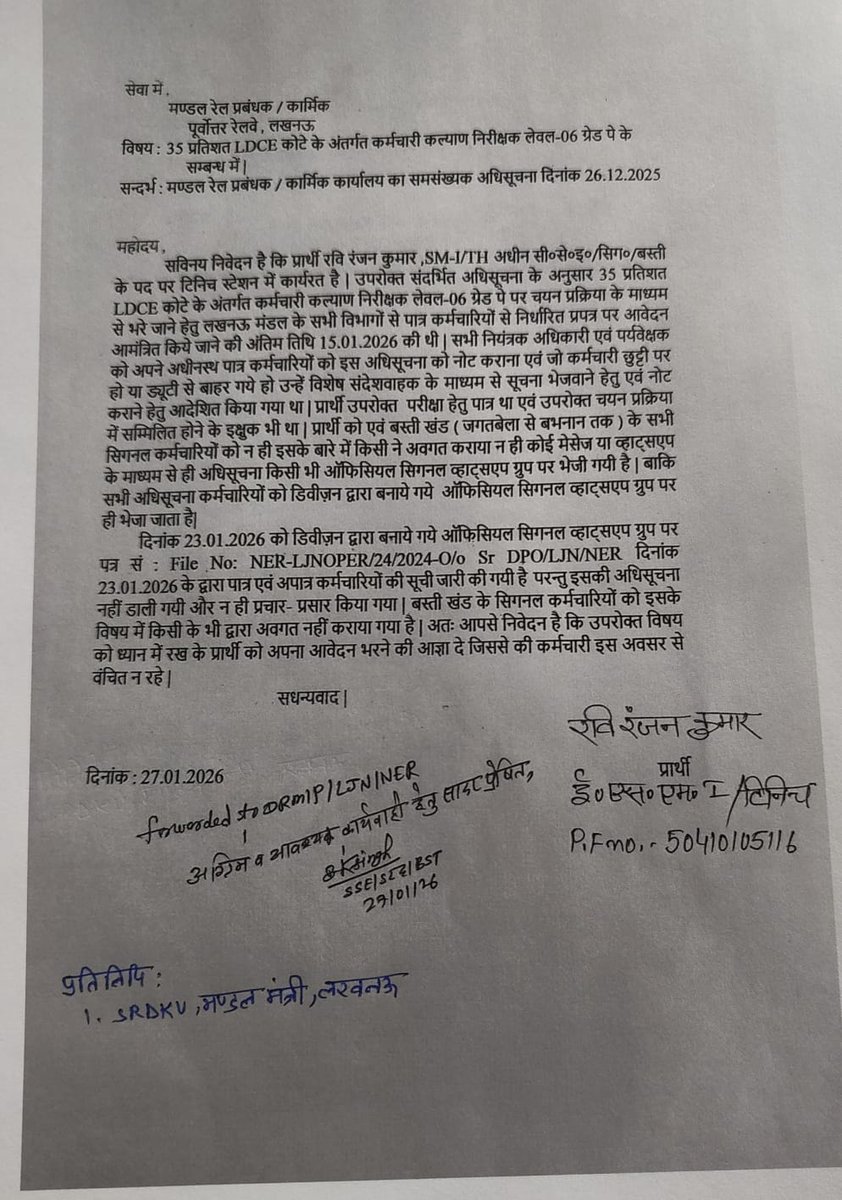 सेवा में ,
मण्डल रेल प्रबंधक / कार्मिक
पूर्वोत्तर रेलवे , लखनऊ
विषय : 35 प्रतिशत LDCE कोटे के अंतर्गत कर्मचारी कल्याण निरीक्षक लेवल-06 ग्रेड पे के
सम्बन्ध में |
सन्दर्भ : मण्डल रेल प्रबंधक / कार्मिक कार्यालय का समसंख्यक अधिसूचना दिनांक 26.12.2025
महोदय,
सविनय निवेदन है कि प्रार्थी रवि रंजन कुमार ,SM-I/TH अधीन सी०से०इ०/सिग०/बस्ती
के पद पर टिनिच स्टेशन में कार्यरत है | उपरोक्त संदर्भित अधिसूचना के अनुसार 35 प्रतिशत
LDCE कोटे के अंतर्गत कर्मचारी कल्याण निरीक्षक लेवल-06 ग्रेड पे पर चयन प्रक्रिया के माध्यम
से भरे जाने हेतु लखनऊ मंडल के सभी विभागों से पात्र कर्मचारियों से निर्धारित प्रपत्र पर आवेदन
आमंत्रित किये जाने की अंतिम तिथि 15.01.2026 की थी | सभी नियंत्रक अधिकारी एवं पर्यवेक्षक
को अपने अधीनस्थ पात्र कर्मचारियों को इस अधिसूचना को नोट कराना एवं जो कर्मचारी छुट्टी पर
हो या ड्यूटी से बाहर गये हो उन्हें विशेष संदेशवाहक के माध्यम से सूचना भेजवाने हेतु एवं नोट
कराने हेतु आदेशित किया गया था | प्रार्थी उपरोक्त परीक्षा हेतु पात्र था एवं उपरोक्त चयन प्रक्रिया
में सम्मिलित होने के इक्षुक भी था | प्रार्थी को एवं बस्ती खंड ( जगतबेला से बभनान तक ) के सभी
सिगनल कर्मचारियों को न ही इसके बारे में किसी ने अवगत कराया न ही कोई मेसेज या व्हाट्सएप
के माध्यम से ही अधिसूचना किसी भी ऑफिसियल सिगनल व्हाट्सएप ग्रुप पर भेजी गयी है | बाकि
सभी अधिसूचना कर्मचारियों को डिवीज़न द्वारा बनाये गये ऑफिसियल सिगनल व्हाट्सएप ग्रुप पर
ही भेजा जाता है|
दिनांक 23.01.2026 को डिवीज़न द्वारा बनाये गये ऑफिसियल सिगनल व्हाट्सएप ग्रुप पर
पत्र सं : File No: NER-LJNOPER/24/2024-O/o Sr DPO/LJN/NER दिनांक
23.01.2026 के द्वारा पात्र एवं अपात्र कर्मचारियों की सूची जारी की गयी है परन्तु इसकी अधिसूचना
नहीं डाली गयी और न ही प्रचार- प्रसार किया गया | बस्ती खंड के सिगनल कर्मचारियों को इसके
विषय में किसी के भी द्वारा अवगत नहीं कराया गया है | अतः आपसे निवेदन है कि उपरोक्त विषय
को ध्यान में रख के प्रार्थी को अपना आवेदन भरने की आज्ञा दे जिससे की कर्मचारी इस अवसर से
वंचित न रहे |
सधन्यवाद |
रवि रंजन कुमार
दिनांक : 27.01.2026
प्रार्थी
ई०एस०एम० I/टिनिच
P.F no. - 50410105116
forwarded to DRM/P/LJN/NER
अग्रिम व आवश्यक कार्यवाही हेतु सादर प्रेषित,
SSE/SIG/BST
27/01/26
प्रतिलिपि :
1. SRBKU, मण्डल मंत्री, लखनऊ